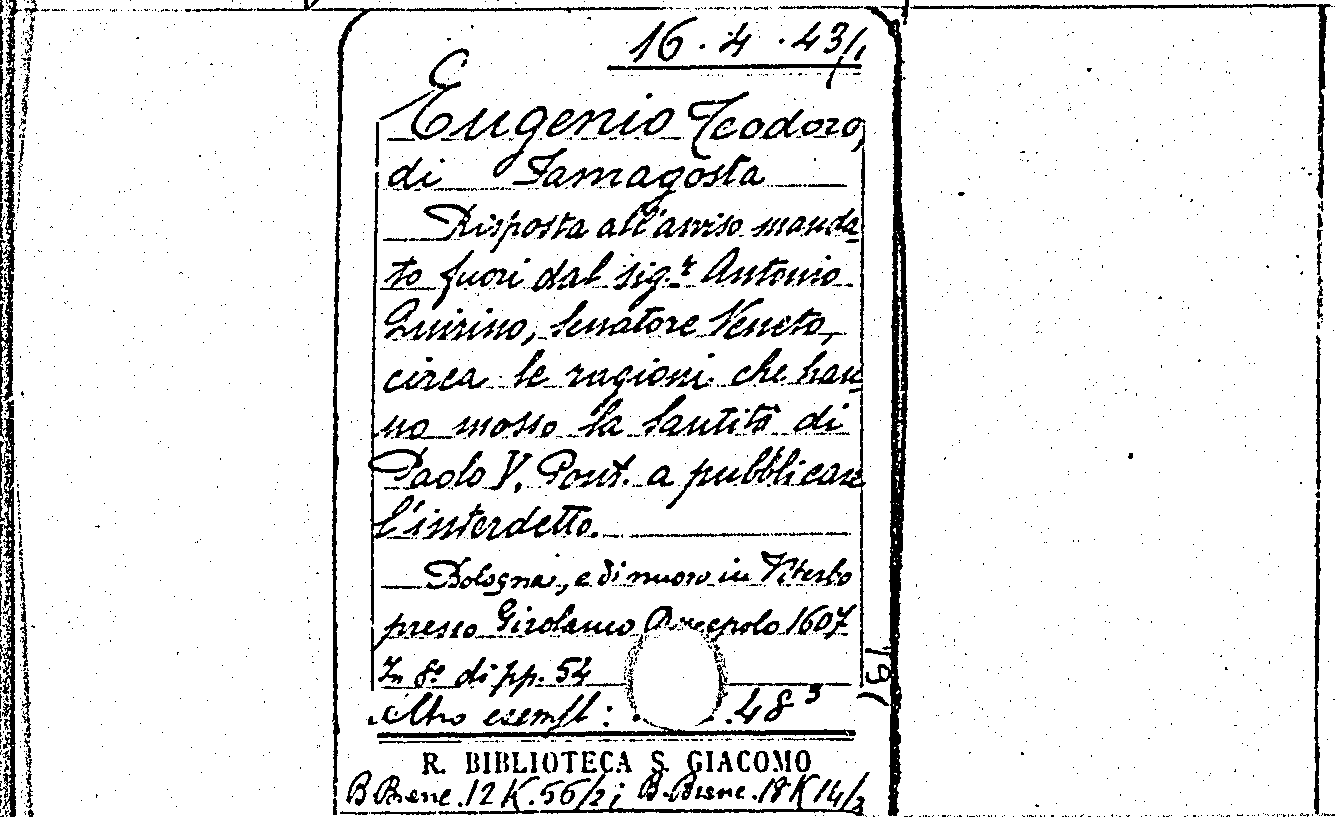 16.4.43/1
Eugenio Teodoro,
di Famagosta
Risposta all'avviso manda-
to fuori dal sig.r Antonio
Quirino, Senatore Veneto,
circa le ragioni che han-
no mosso la Santità di
Paolo V. Pont. a pubblicare
l'interdetto.
Bologna, e di nuovo in Viterbo
presso Girolamo 1607
In 8° di pp. 54
Altro esempl: .48³
R. BIBLIOTECA S. GIACOMO
B. Branc. 12 K. 56/2; B. Branc. 18 K 14/3